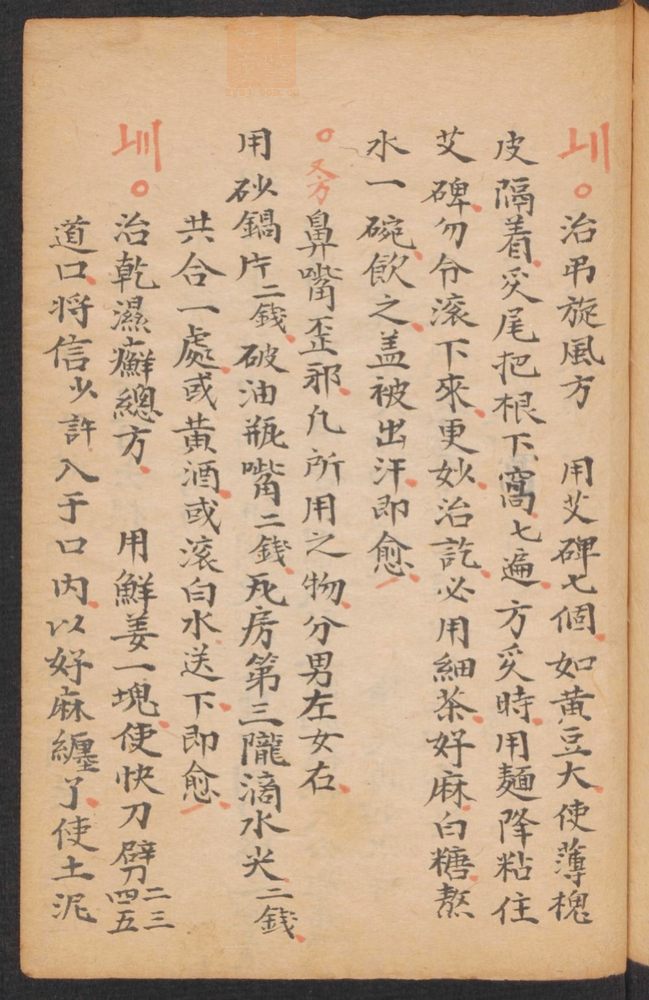 治吊旋風方 用艾碑七個如黄豆大使薄槐
皮隔着灸尾把根下窩七遍方灸時用麵降粘住
艾碑勿令滚下來更妙治訖必用細茶好麻白糖熬
水一碗飲之盖被出汗即愈
又方鼻嘴歪邪凡所用之物分男左女右
用砂鍋片二錢破油瓶嘴二錢死房第三隴滴水尖二錢
共合一處或黄酒或滚白水送下即愈
治乾濕癬總方 用鮮姜一塊使快刀劈二三四五
道口将信少許入于口内以好麻纏了使土泥